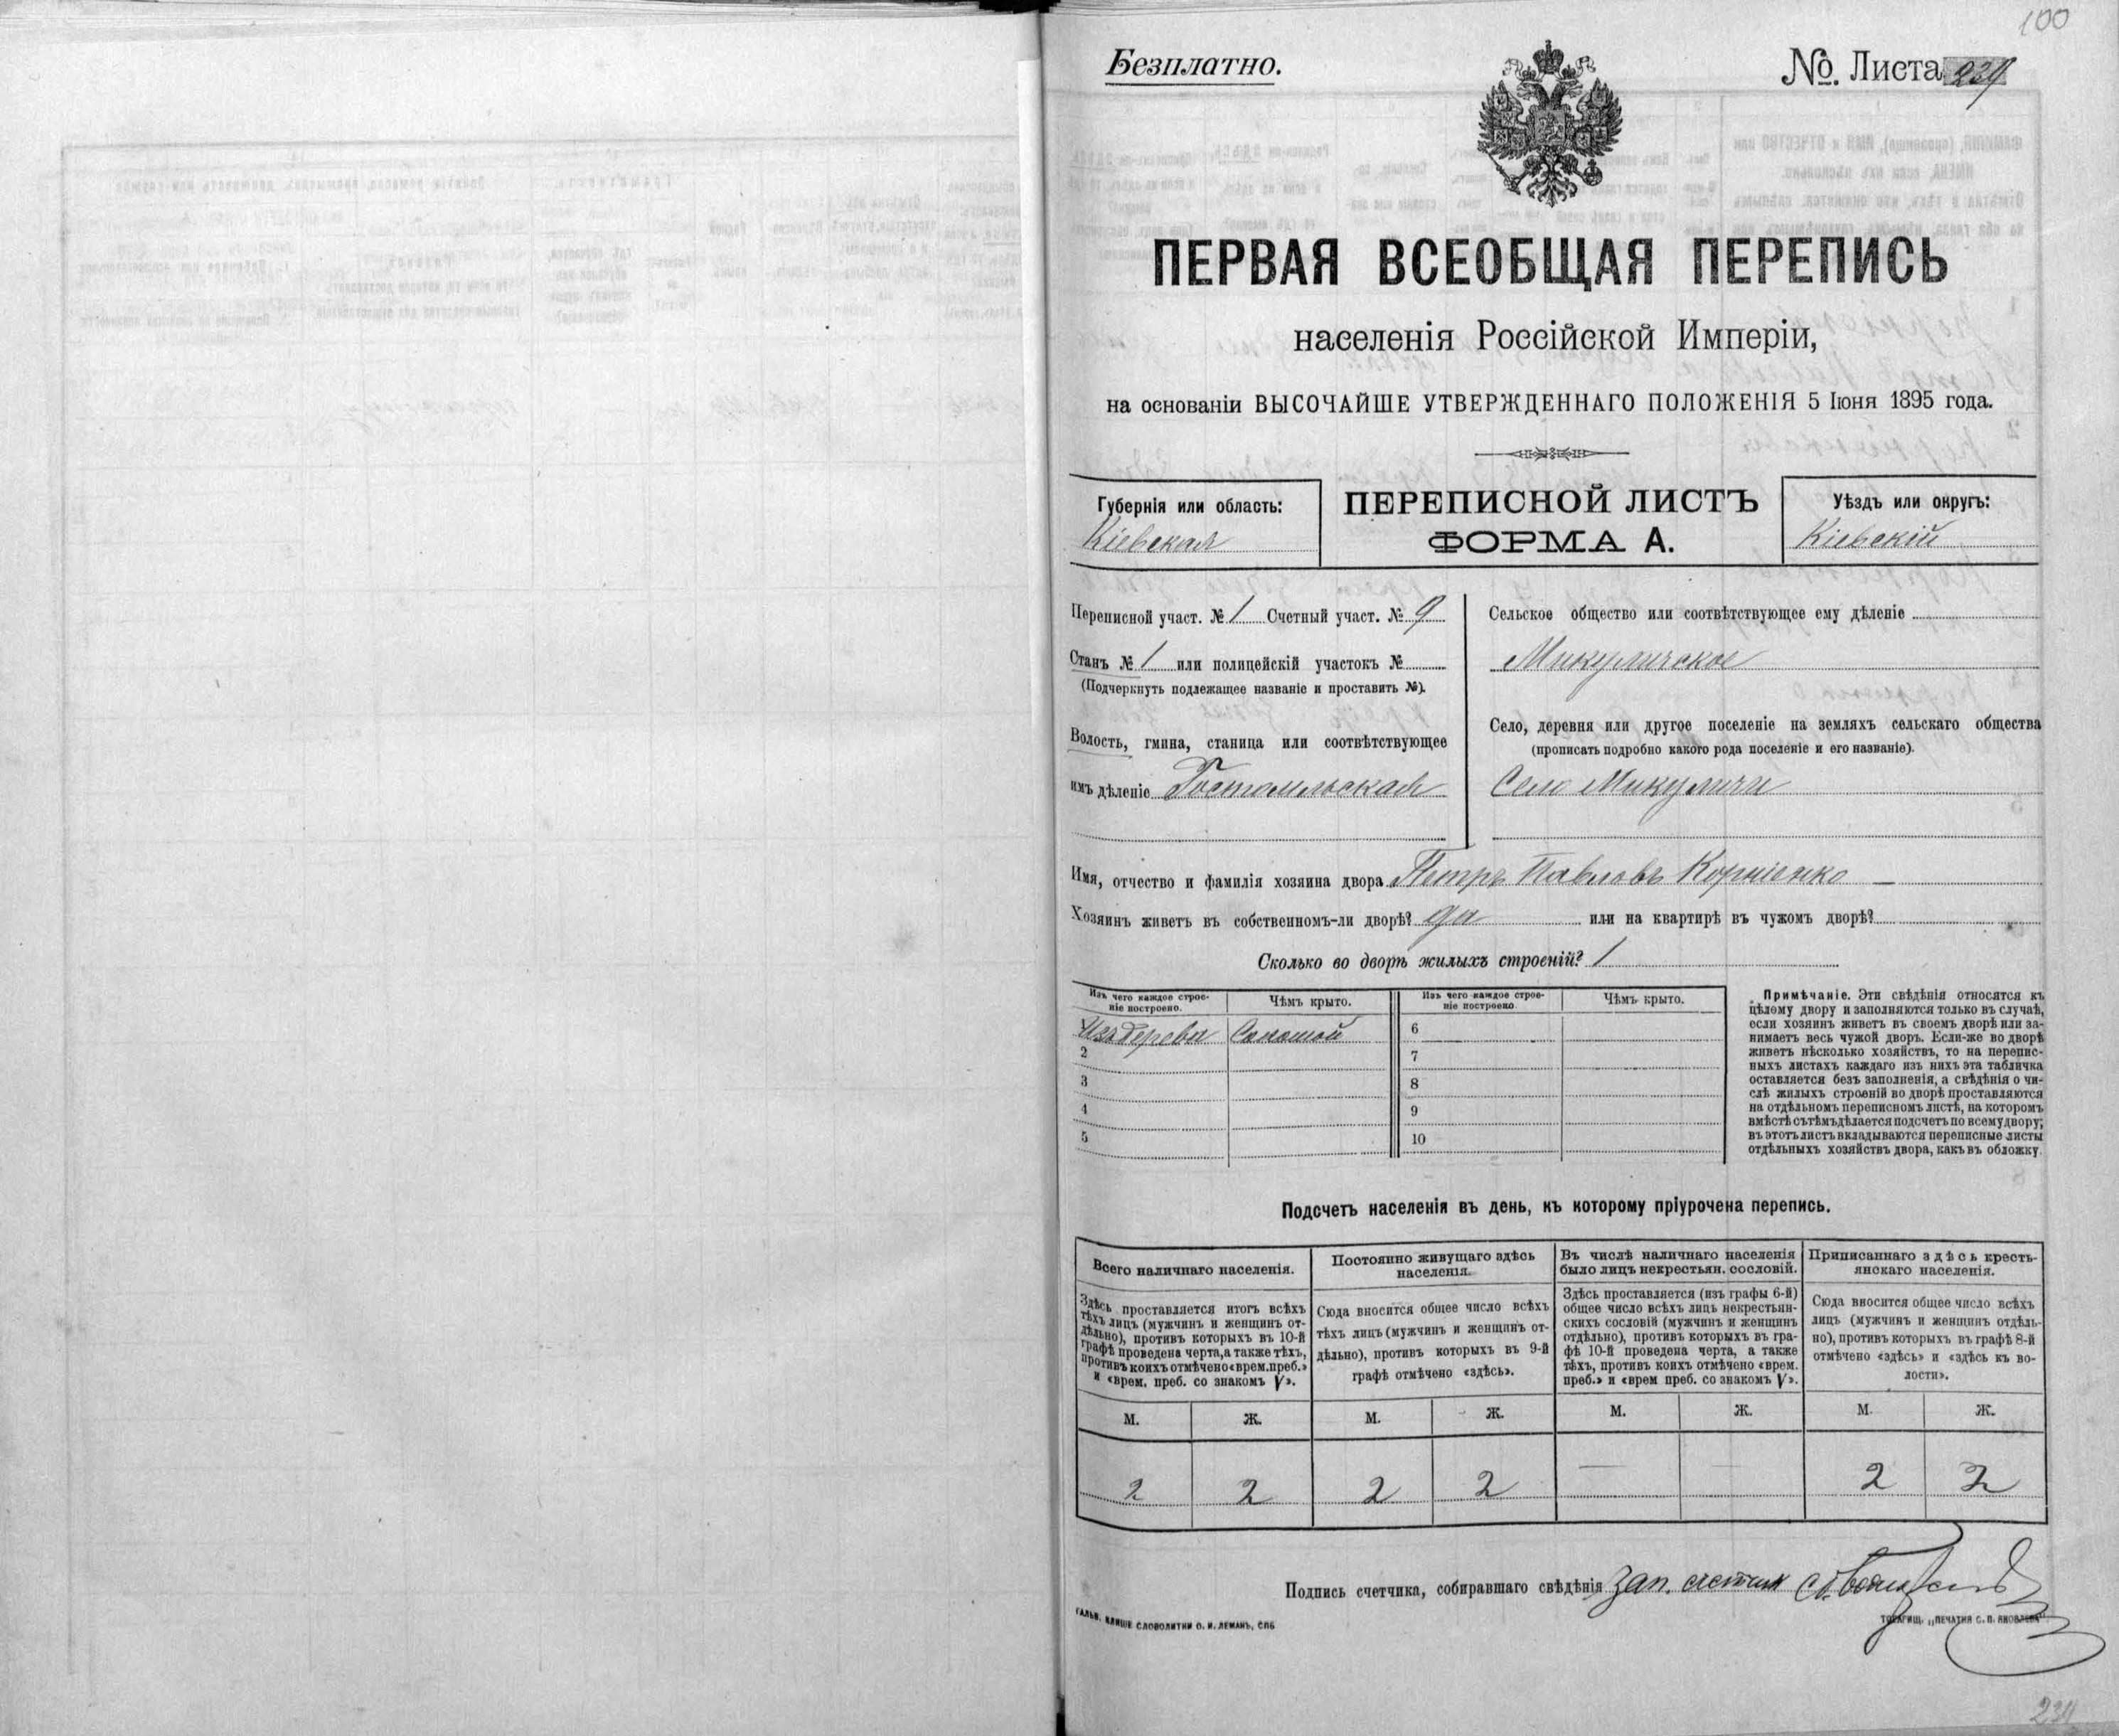 100
Безплатно.
№. Листа 239
ПЕРВАЯ ВСЕОБЩАЯ ПЕРЕПИСЬ
населенія Россійской Имперіи,
на основаніи ВЫСОЧАЙШЕ УТВЕРЖДЕННАГО ПОЛОЖЕНІЯ 5 Іюня 1895 года.
Губернія или область:
Кіевская
ПЕРЕПИСНОЙ ЛИСТЪ
ФОРМА А.
Уѣздъ или округъ:
Кіевскій
Переписной участ. № 1 Счетный участ. № 9
Станъ № 1 или полицейскій участокъ №
(Подчеркнуть подлежащее названіе и проставить №).
Волость, гмина, станица или соотвѣтствующее
имъ дѣленіе Гостомльская
Сельское общество или соотвѣтствующее ему дѣленіе
Микуличское
Село, деревня или другое поселеніе на земляхъ сельскаго общества
(прописать подробно какого рода поселеніе и его названіе).
Село Микуличи
Имя, отчество и фамилія хозяина двора Петръ Павловъ Корніенко
Хозяинъ живетъ въ собственномъ-ли дворѣ? да или на квартирѣ въ чужомъ дворѣ?
Сколько во дворѣ жилыхъ строеній? 1
Изъ чего каждое строе-
ніе построено.
Чѣмъ крыто.
Изъ дерева
Соломой
2
3
4
5
Изъ чего каждое строе-
ніе построено
Чѣмъ крыто.
6
7
8
9
10
Примѣчаніе. Эти свѣдѣнія относятся къ
цѣлому двору и заполняются только въ случаѣ,
если хозяинъ живетъ въ своемъ дворѣ или за-
нимаетъ весь чужой дворъ. Если-же во дворѣ
живетъ нѣсколько хозяйствъ, то на перепис-
ныхъ листахъ каждаго изъ нихъ эта табличка
оставляется безъ заполненія, а свѣдѣнія о чи-
слѣ жилыхъ строеній во дворѣ проставляются
на отдѣльномъ переписномъ листѣ, на которомъ
вмѣстѣ съ тѣмъ дѣлается подсчетъ по всему двору;
въ этотъ листъ вкладываются переписные листы
отдѣльныхъ хозяйствъ двора, какъ въ обложку.
Подсчетъ населенія въ день, къ которому пріурочена перепись.
Всего наличнаго населенія.
Здѣсь проставляется итогъ всѣхъ
тѣхъ лицъ (мужчинъ и женщинъ от-
дѣльно), противъ которыхъ въ 10-й
графѣ проведена черта, а также тѣхъ,
противъ коихъ отмѣчено «врем. преб.»
и «врем. преб. со знакомъ V».
Постоянно живущаго здѣсь
населенія.
Сюда вносится общее число всѣхъ
тѣхъ лицъ (мужчинъ и женщинъ от-
дѣльно), противъ которыхъ въ 9-й
графѣ отмѣчено «здѣсь».
Въ числѣ наличнаго населенія
было лицъ некрестьян. сословій.
Здѣсь проставляется (изъ графы 6-й)
общее число всѣхъ лицъ некрестьян-
скихъ сословій (мужчинъ и женщинъ
отдѣльно), противъ которыхъ въ гра-
фѣ 10-й проведена черта, а также
тѣхъ, противъ коихъ отмѣчено «врем.
преб.» и «врем преб. со знакомъ V».
Приписаннаго здѣсь кресть-
янскаго населенія.
Сюда вносится общее число всѣхъ
лицъ (мужчинъ и женщинъ отдѣль-
но), противъ которыхъ въ графѣ 8-й
отмѣчено «здѣсь» и «здѣсь къ во-
лости».
М. Ж. М. Ж. М. Ж. М. Ж.
2 2 2 2 — — 2 2
Подпись счетчика, собиравшаго свѣдѣнія Зап. счетчик
ГАЛЬВ. КЛИШЕ СЛОВОЛИТНИ О. И. ЛЕМАНЪ, СПБ
ТОВАРИЩ. „ПЕЧАТНЯ С. П. ЯКОВЛЕВА".
239